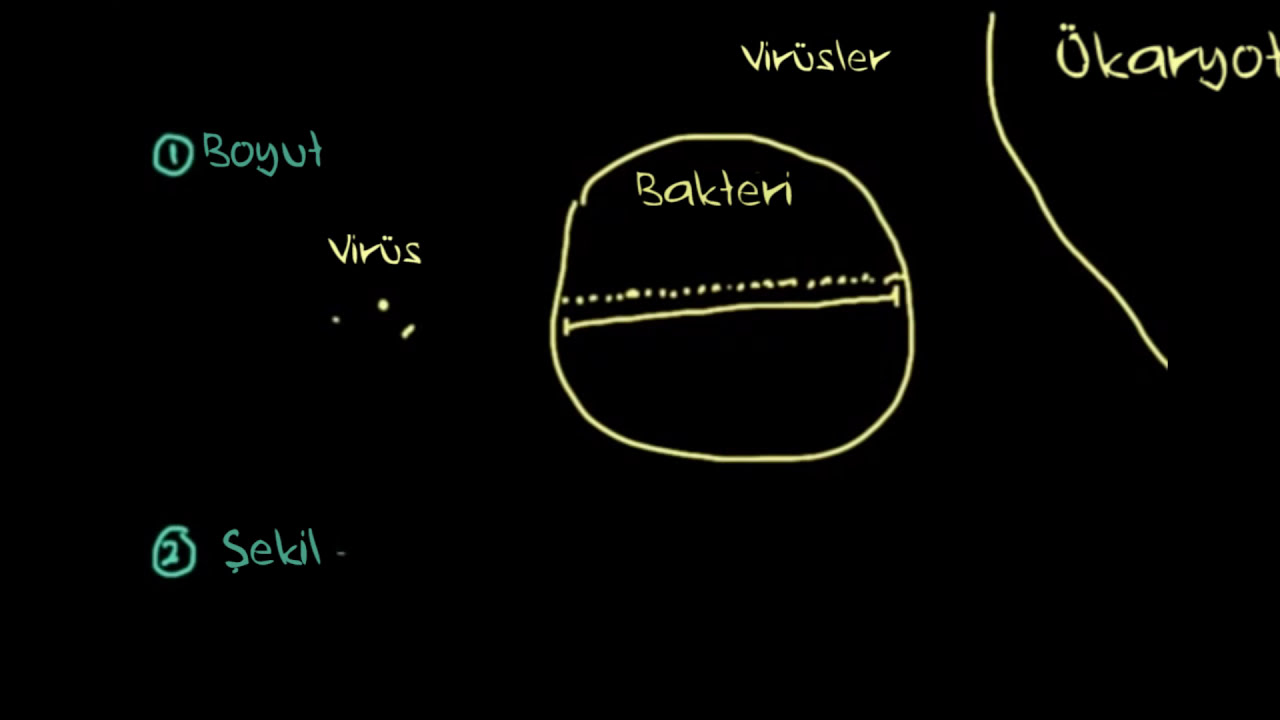 Virüsler
Ökaryot
① Boyut
Bakteri
Virüs
② Şekil -